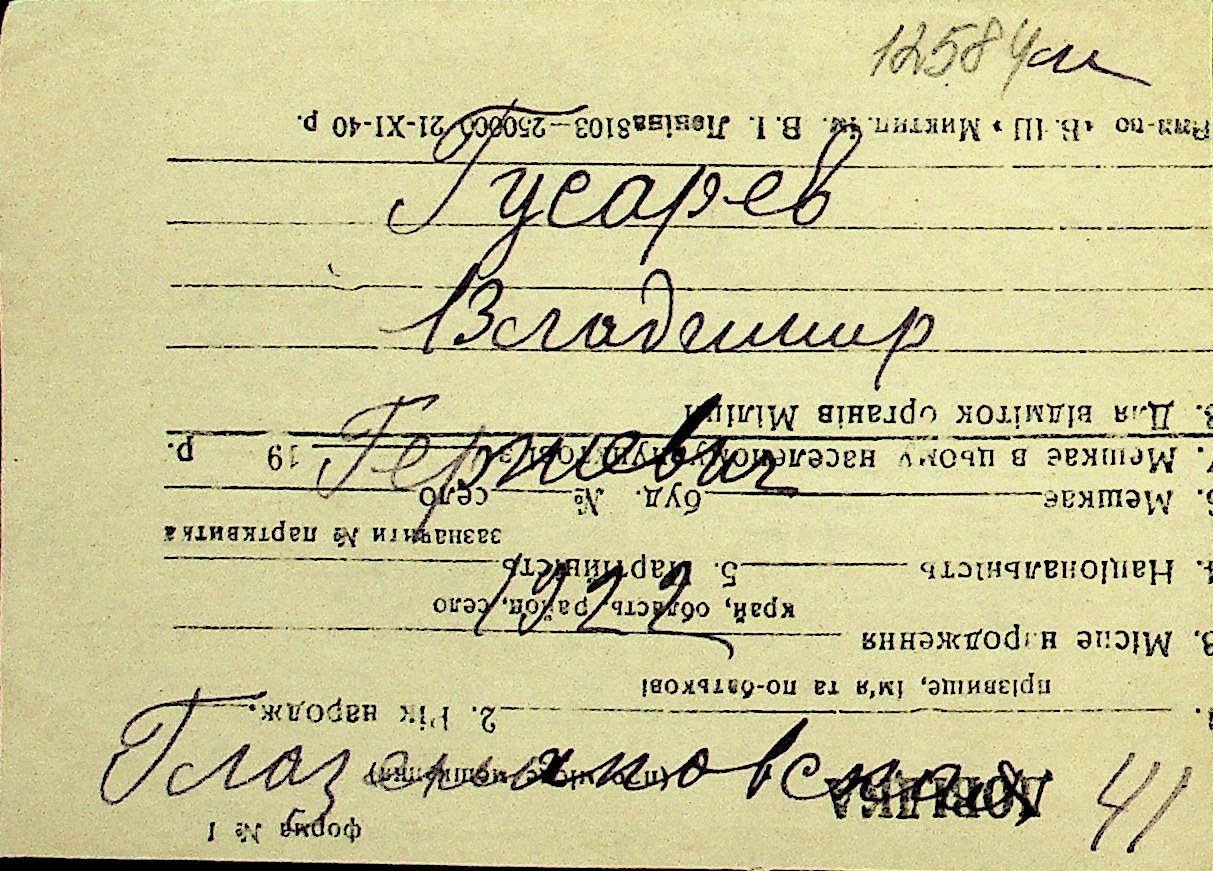 12584
Гусарев
Владимир
1922
41
форма № 1
ДОВІДКА
2. Рік народж.
прізвище, ім'я та по-батькові
3. Місце народження
край, область, район, село
4. Національність 5. Партійність
зазначити № партквитка
6. Мешкає буд. № село
7. Мешкає в цьому населеному пункті з 19 р.
8. Для відміток органів Міліції
ім. В. І. Леніна 8103—250000 21-XI-40 р.